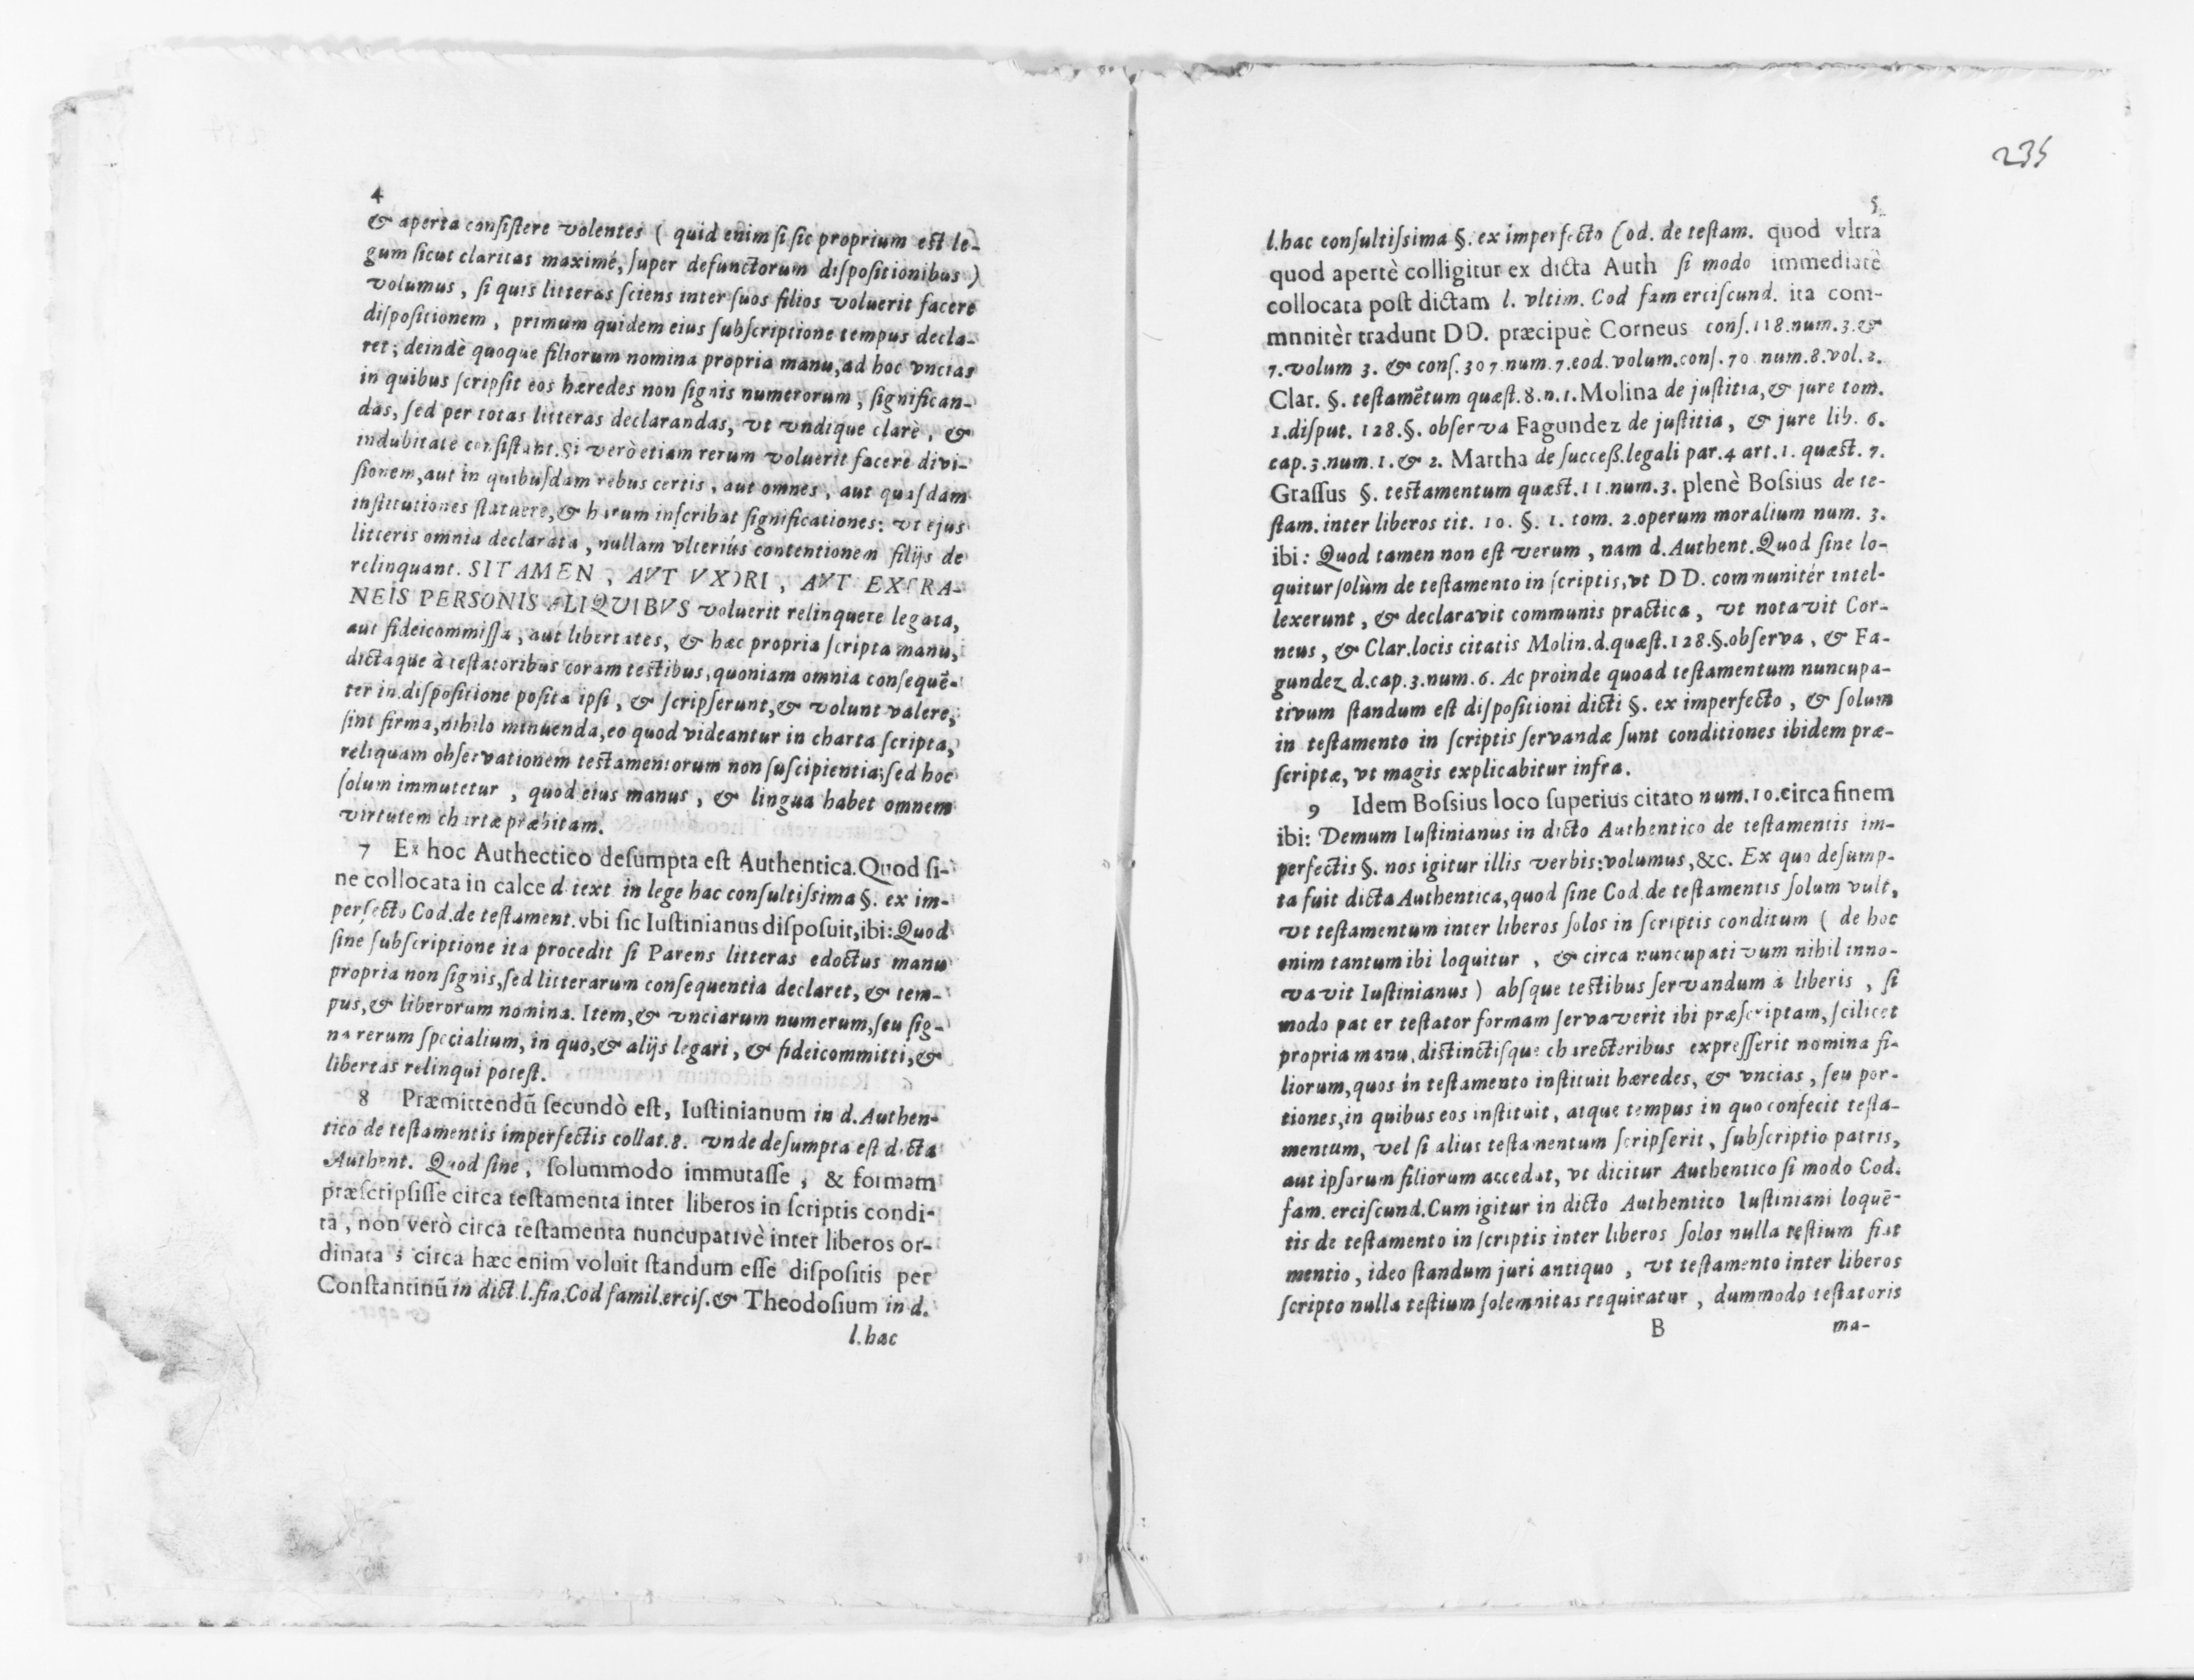 4
& aperta consistere volentes ( quid enim si sic proprium est le-
gum sicut claritas maximé, super defunctorum dispositionibus )
volumus, si quis litteras sciens inter suos filios voluerit facere
dispositionem, primum quidem eius subscriptione tempus decla-
ret; deindè quoque filiorum nomina propria manu, ad hoc vncias
in quibus scripsit eos hæredes non signis numerorum, significan-
das, sed per totas litteras declarandas, vt vndique clarè, &
indubitatè consistant. Si verò etiam rerum voluerit facere divi-
sionem, aut in quibusdam rebus certis, aut omnes, aut quasdam
institutiones statuere, & harum inscribat significationes: vt ejus
litteris omnia declarata, nullam vlteriús contentionem filijs de
relinquant. SI TAMEN, AVT VXORI, AVT EXTRA-
NEIS PERSONIS ALIQVIBVS voluerit relinquere legata,
aut fideicommissa, aut libertates, & hæc propria scripta manu,
dictaque à testatoribus coram testibus, quoniam omnia consequē-
ter in dispositione posita ipsi, & scripserunt, & volunt valere,
sint firma, nihilo minuenda, eo quod videantur in charta scripta,
reliquam observationem testamentorum non suscipientia; sed hoc
solum immutetur, quod eius manus, & lingua habet omnem
virtutem chartæ præbitam.
7 Ex hoc Authectico desumpta est Authentica. Quod si-
ne collocata in calce d. text in lege hac consultissima §. ex im-
perfecto Cod. de testament. vbi sic Iustinianus disposuit, ibi: Quod
sine subscriptione ita procedit si Parens litteras edoctus manu
propria non signis, sed litterarum consequentia declaret, & tem-
pus, & liberorum nomina. Item, & vnciarum numerum, seu sig-
na rerum specialium, in quo, & alijs legari, & fideicommitti, &
libertas relinqui potest.
8 Præmittendū secundò est, Iustinianum in d. Authen-
tico de testamentis imperfectis collat. 8. vnde desumpta est dicta
Authent. Quod sine, solummodo immutasse, & formam
præscripsisse circa testamenta inter liberos in scriptis condi-
ta, non verò circa testamenta nuncupativè inter liberos or-
dinata; circa hæc enim voluit standum esse dispositis per
Constantinū in dict l. fin. Cod famil. ercis. & Theodosium in d.
l. hac
235
5
l. hac consultissima §. ex imperfecto Cod. de testam. quod vltra
quod apertè colligitur ex dicta Auth si modo immediatè
collocata post dictam l. vltim. Cod fam erciscund. ita com-
mnnitèr tradunt DD. præcipuè Corneus cons. 118. num. 3. &
7. volum 3. & cons. 307 num. 7. eod. volum. cons. 70 num. 8. vol. 2.
Clar. §. testamētum quæst. 8. n. 1. Molina de justitia, & jure tom.
1. disput. 128. §. observa Fagundez de justitia, & jure lib. 6.
cap. 3. num. 1. & 2. Martha de success. legali par. 4 art. 1. quæst. 7.
Grassus §. testamentum quæst. 11. num. 3. plenè Bossius de te-
stam. inter liberos tit. 10. §. 1. tom. 2. operum moralium num. 3.
ibi: Quod tamen non est verum, nam d. Authent. Quod sine lo-
quitur solùm de testamento in scriptis, vt DD. communitér intel-
lexerunt, & declaravit communis practica, vt notavit Cor-
neus, & Clar. locis citatis Molin. d. quæst. 128. §. observa, & Fa-
gundez d. cap. 3. num. 6. Ac proinde quoad testamentum nuncupa-
tivum standum est dispositioni dicti §. ex imperfecto, & solum
in testamento in scriptis servandæ sunt conditiones ibidem præ-
scriptæ, vt magis explicabitur infra.
9 Idem Bossius loco superius citato num. 10. circa finem
ibi: Demum Iustinianus in dicto Authentico de testamentis im-
perfectis §. nos igitur illis verbis: volumus, &c. Ex quo desump-
ta fuit dicta Authentica, quod sine Cod. de testamentis solum vult,
vt testamentum inter liberos solos in scriptis conditum ( de hoc
enim tantum ibi loquitur, & circa nuncupativum nihil inno-
vavit Iustinianus ) absque testibus servandum à liberis, si
modo pater testator formam servaverit ibi præscriptam, scilicet
propria manu, distinctisque charecteribus expresserit nomina fi-
liorum, quos in testamento instituit hæredes, & vncias, seu por-
tiones, in quibus eos instituit, atque tempus in quo confecit testa-
mentum, vel si alius testamentum scripserit, subscriptio patris,
aut ipsorum filiorum accedat, vt dicitur Authentico si modo Cod.
fam. erciscund. Cum igitur in dicto Authentico Iustiniani loquē-
tis de testamento in scriptis inter liberos solos nulla testium fiat
mentio, ideo standum juri antiquo, vt testamento inter liberos
scripto nulla testium solemnitas requiratur, dummodo testatoris
B ma-